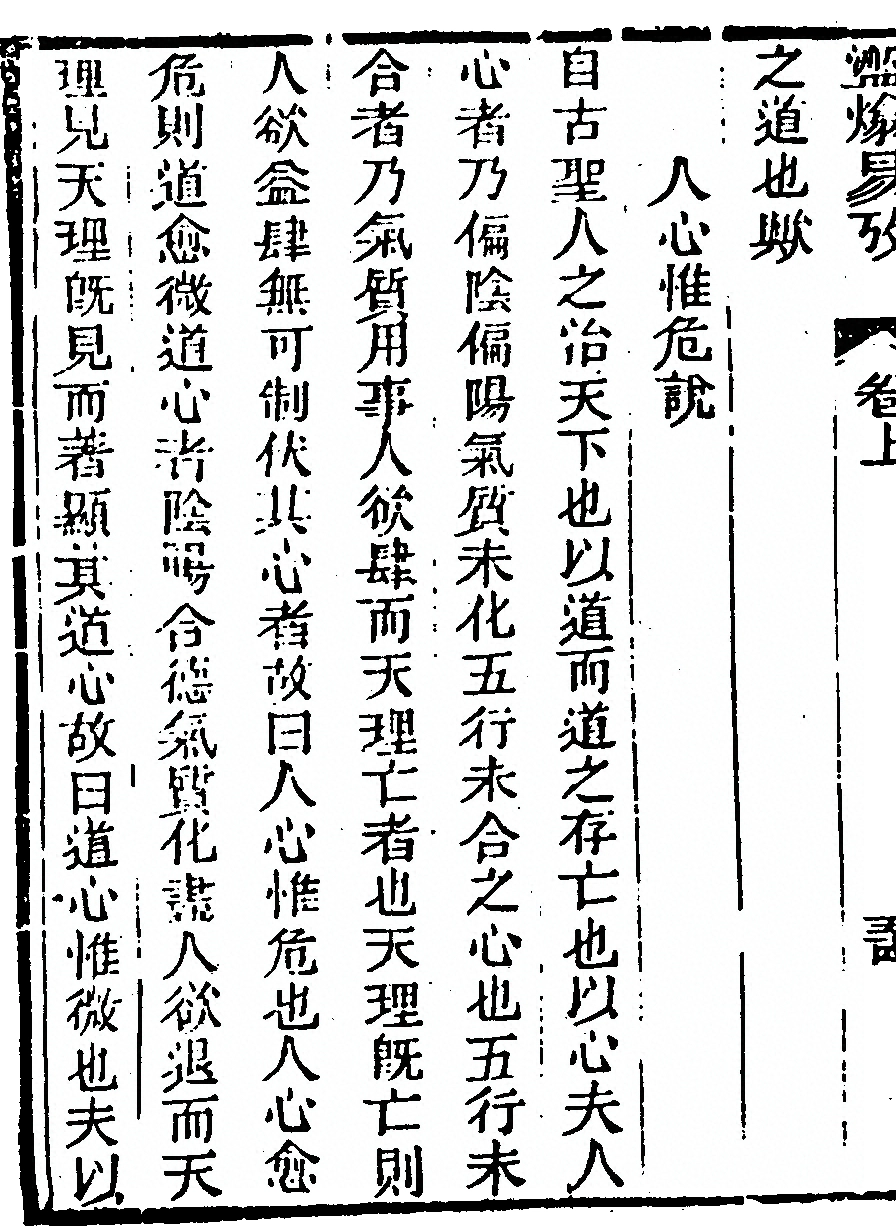 易攷 卷上
之道也歟
人心惟危說
自古聖人之治天下也以道而道之存亡也以心夫人
心者乃偏陰偏陽氣質未化五行未合之心也五行未
合者乃氣質用事人欲肆而天理亡者也天理旣亡則
人欲益肆無可制伏其心者故曰人心惟危也人心愈
危則道愈微道心者陰陽合德氣質化盡人欲退而天
理見天理旣見而著顯其道心故曰道心惟微也夫以